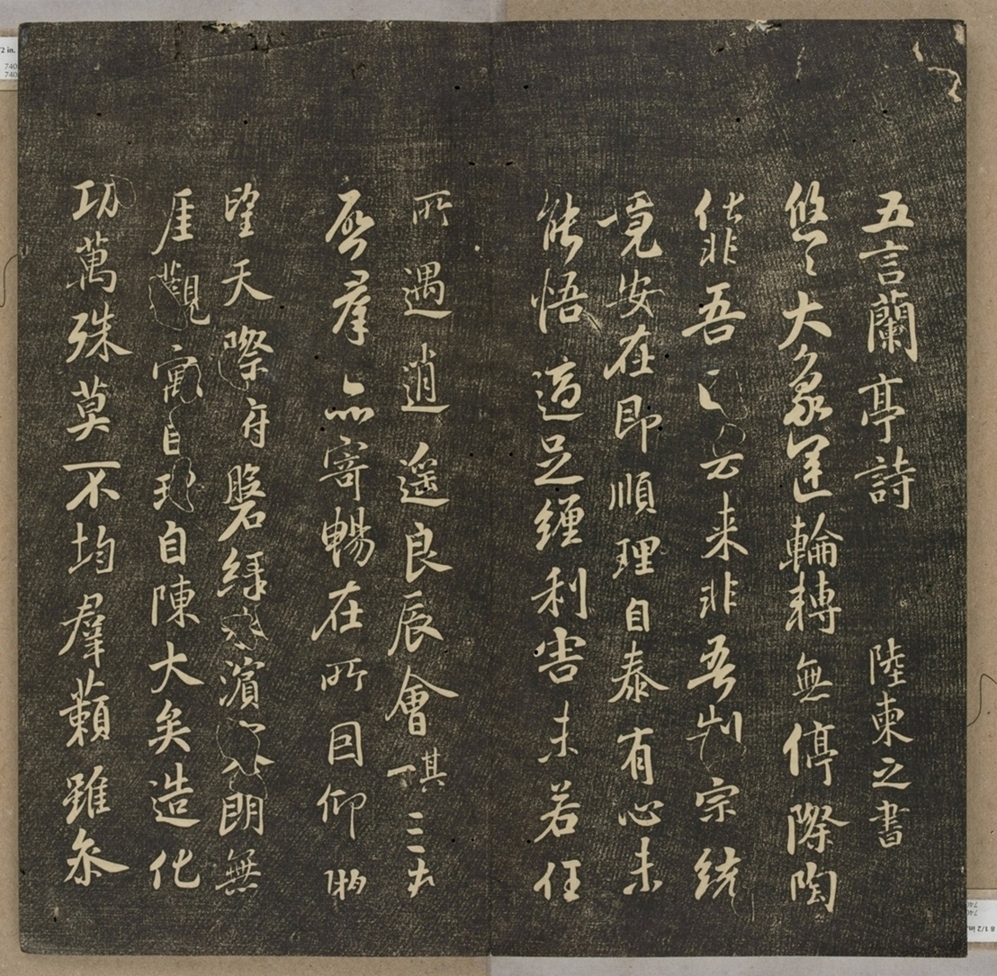 五言蘭亭詩 陸柬之書
悠〻大象運輪轉無停際陶
化非吾因去来非吾制宗統
竟安在即順理自泰有心未
能悟適足纏利害未若任
所遇逍遥良辰會其一三春
啓羣品寄暢在所因仰眺
望天際府磐緑水濱寥朗無
厓觀寓目理自陳大矣造化
功萬殊莫不均羣藾雖叅